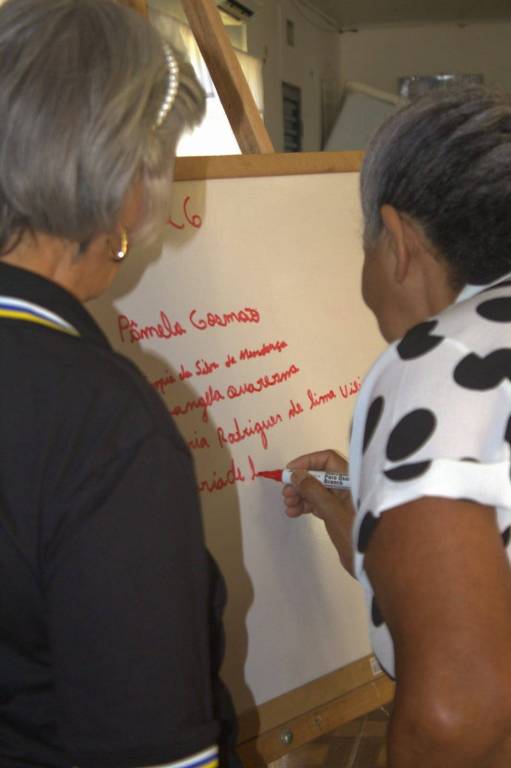 C6
Pâmela Cosmao
da Silva de Mendonça
angela Quaresma
ria Rodrigues de lima
ria de